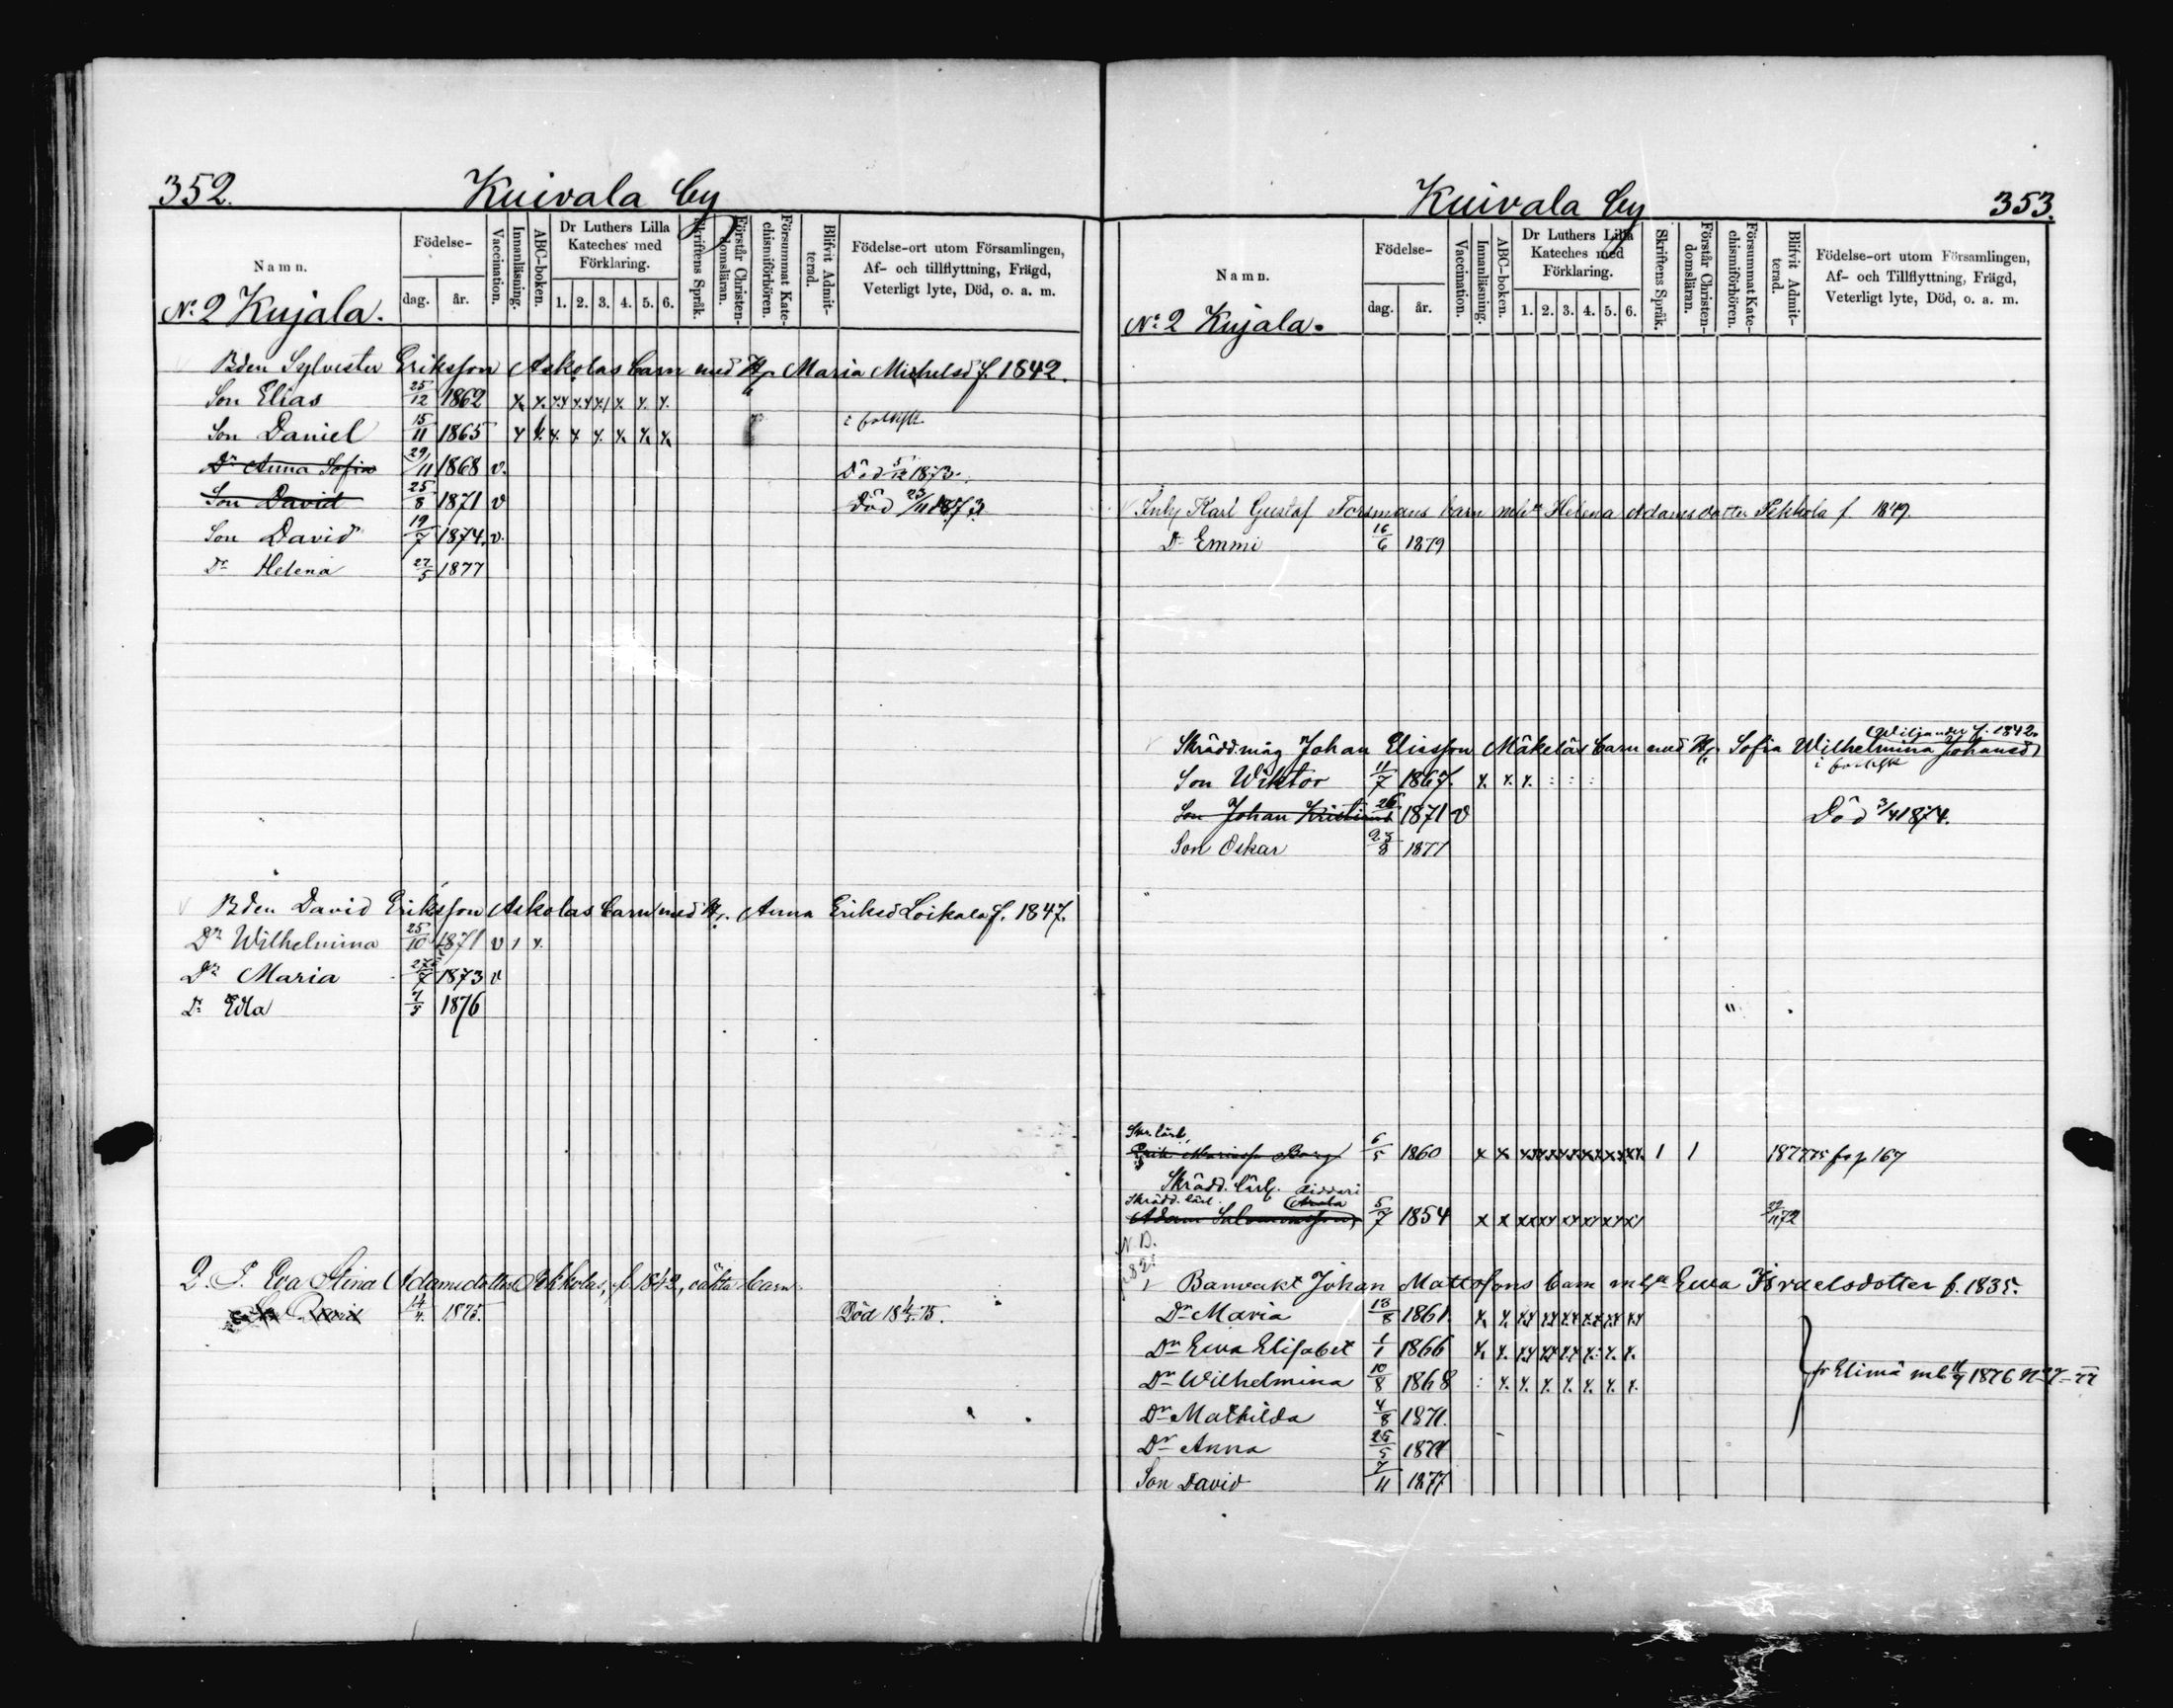 352.
Kuivala by
Namn.
Födelse-
dag. år.
Vaccination.
Innanläsning.
ABC-boken.
Dr Luthers Lilla Kateches med Förklaring.
1. 2. 3. 4. 5. 6.
Skriftens Språk.
Förstår Christendomsläran.
Försummat Katechismiförhören.
Blifvit Admitterad.
Födelse-ort utom Församlingen, Af- och tillflyttning, Frägd, Veterligt lyte, Död, o. a. m.
No 2 Kujala.
Bden Sylvester Eriksson Askolas barn med H. Maria Michelsd f. 1842.
Son Elias 25/12 1862
Son Daniel 15/11 1865
Dr Anna Sofia 29/11 1868 v. Död 5/12 1873.
Son David 25/8 1871 v Död 23/11 1873.
Son David 19/7 1874. v.
Dr Helena 27/5 1877
Bden David Eriksson Askolas barn med H. Anna Eriksd Loikala f. 1847.
Dr Wilhelmina 25/10 1871 v
Dr Maria 27/7 1873 v
Dr Edla 7/5 1876
2. P. Eva Stina Adamsdotter Sekkolas, f. 1842, oäkta barn
Son David 14/4 1875. Död 18 4/5 75.
Kuivala by
353.
Namn.
Födelse-
dag. år.
Vaccination.
Innanläsning.
ABC-boken.
Dr Luthers Lilla Kateches med Förklaring.
1. 2. 3. 4. 5. 6.
Skriftens Språk.
Förstår Christendomsläran.
Försummat Katechismiförhören.
Blifvit Admitterad.
Födelse-ort utom Församlingen, Af- och Tillflyttning, Frägd, Veterligt lyte, Död, o. a. m.
No 2 Kujala.
Inhy Karl Gustaf Forsmans barn Helena Adamsdotter Sekkola f. 1849.
Dr Emmi 16/6 1879
Wiljander f. 1842.
Skrädd.mäg Johan Eliasson Mäkeläs barn med H. Sofia Wilhelmina Johansd
Son Wiktor 11/7 1867.
Son Johan Kristian 26 1871 v Död 3/4 1874.
Son Oskar 23/8 1877
Skr. lärl.
Erik Mariasson Borg 6/5 1860 1 1 1877 167
Skrädd. lärl.
Skrädd. lärl.
Adam Salomonsson 5/7 1854 72
N.B.
Banvakt Johan Mattssons barn Ewa Israelsdotter f. 1835.
Dr Maria 13/8 1861.
Dr Ewa Elisabet 1/1 1866
Dr Wilhelmina 10/8 1868
fr Elimä 1876
Dr Mathilda 4/8 1871.
Dr Anna 25/5 1874
Son David 7/11 1877